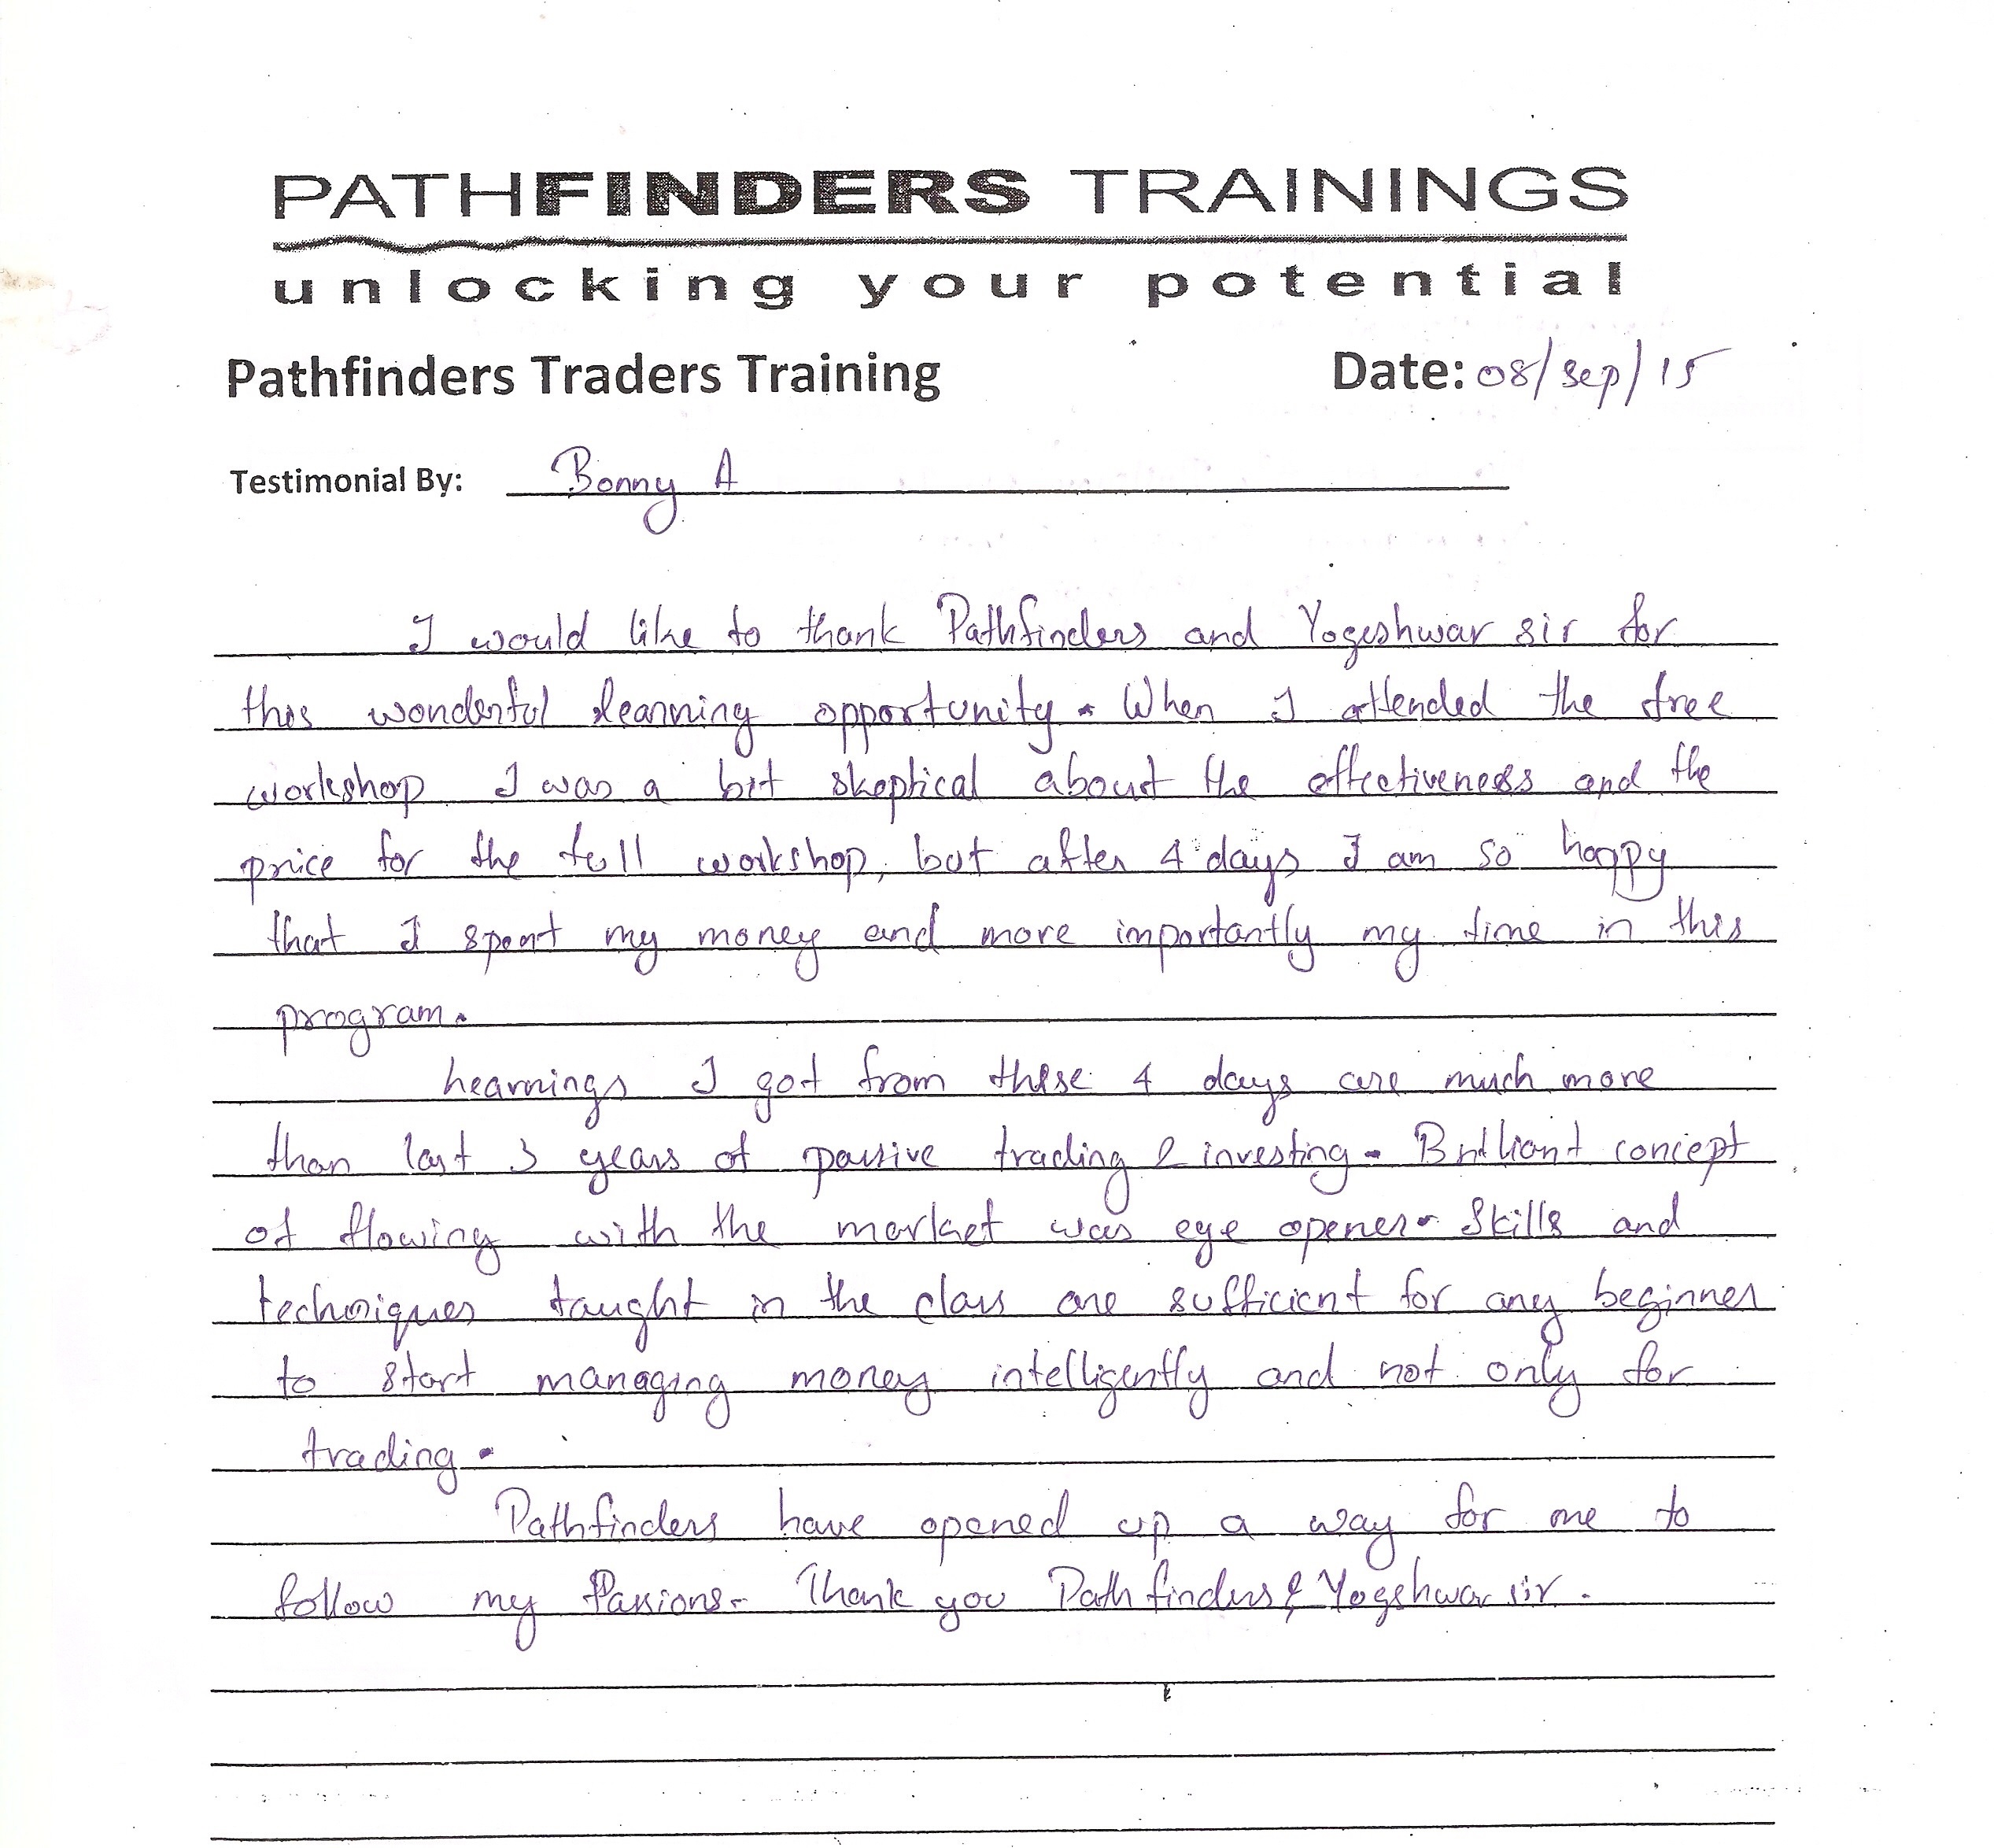 PATHFINDERS TRAININGS
unlocking your potential
Pathfinders Traders Training Date: 08/Sep/15
Testimonial By: Bonny A
I would like to thank Pathfinders and Yogeshwar sir for
this wonderful learning opportunity. When I attended the free
workshop I was a bit skeptical about the effectiveness and the
price for the full workshop, but after 4 days I am so happy
that I spent my money and more importantly my time in this
program.
Learnings I got from these 4 days are much more
than last 3 years of passive trading & investing. Brilliant concept
of flowing with the market was eye opener. Skills and
techniques taught in the class are sufficient for any beginner
to start managing money intelligently and not only for
trading.
Pathfinders have opened up a way for me to
follow my Passions. Thank you Pathfinders & Yogshwar sir.